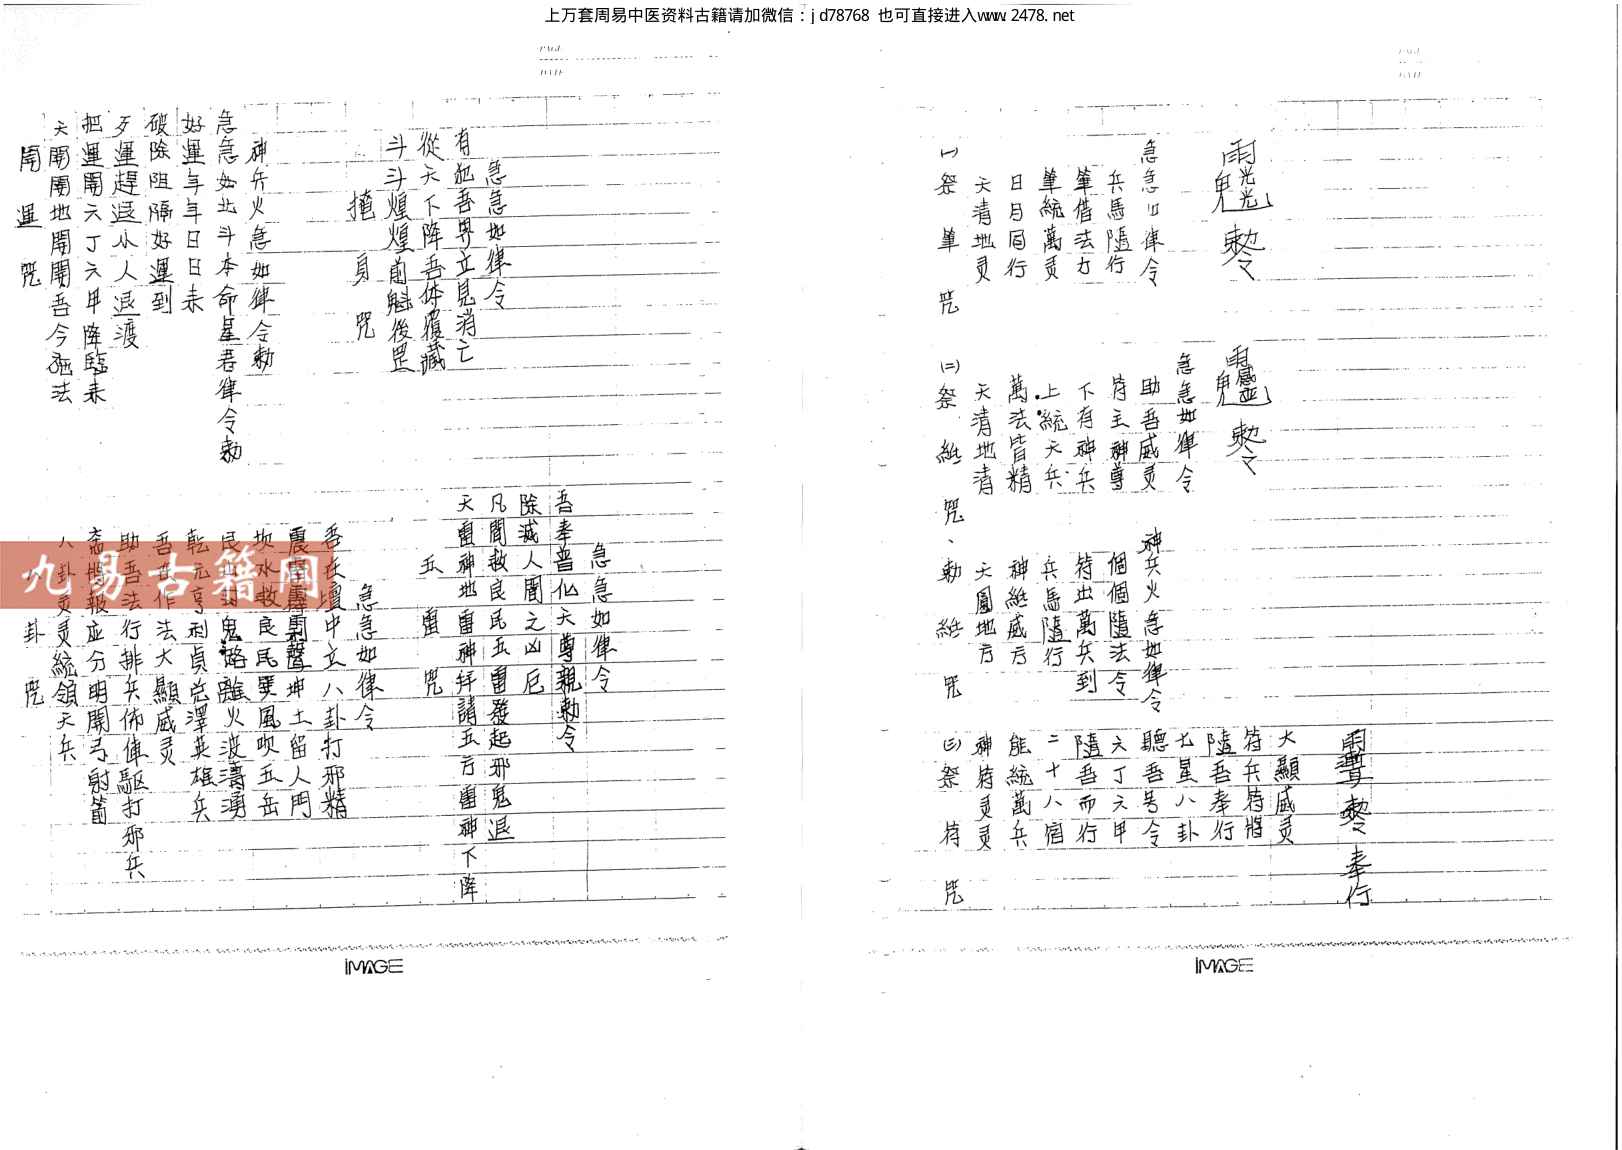 上万套周易中医资料古籍请加微信：jd78768 也可直接进入www.2478.net
開運咒
天開開地開開吾今施法
把運開六丁六甲降臨来
歹運趕退小人退渡
破除阻隔好運到
好運年年日日来
急急如北斗本命星君律令勅
神兵火急如律令勅
掩身咒
斗斗煌煌前魁後罡
從天下降吾体覆藏
有犯吾界立見消亡
急急如律令
八卦咒
八卦灵灵統領天兵
報应分明開弓射箭
助吾法行排兵佈陣驅打邪兵
吾在作法大顯威灵
乾元亨利貞兌澤英雄兵
艮山封鬼路離火波濤湧
坎水救良民巽風吹五岳
震雷聲坤土留人門
吾在壇中立八卦打邪精
急急如律令
五雷咒
天雷神地雷神拜請五方雷神下降
凡間救良民五雷發起邪鬼退
除滅人間之凶厄
吾奉普化天尊親勅令
急急如律令
九易古籍网
IMAGE
(一)祭筆咒
天清地灵
日月同行
筆統萬灵
筆借法力
兵馬隨行
急急如律令
(二)祭紙咒、勅紙咒
天清地清
萬法皆精
上統天兵
下有神兵
符主神尊
助吾威灵
急急如律令
天圓地方
神紙威方
兵馬隨行
符出萬兵到
個個隨法令
神兵火急如律令
(三)祭符咒
神符灵灵
能統萬兵
二十八宿
隨吾而行
六丁六甲
聽吾号令
七星八卦
隨吾奉行
符兵符將
大顯威灵
奉行
IMAGE